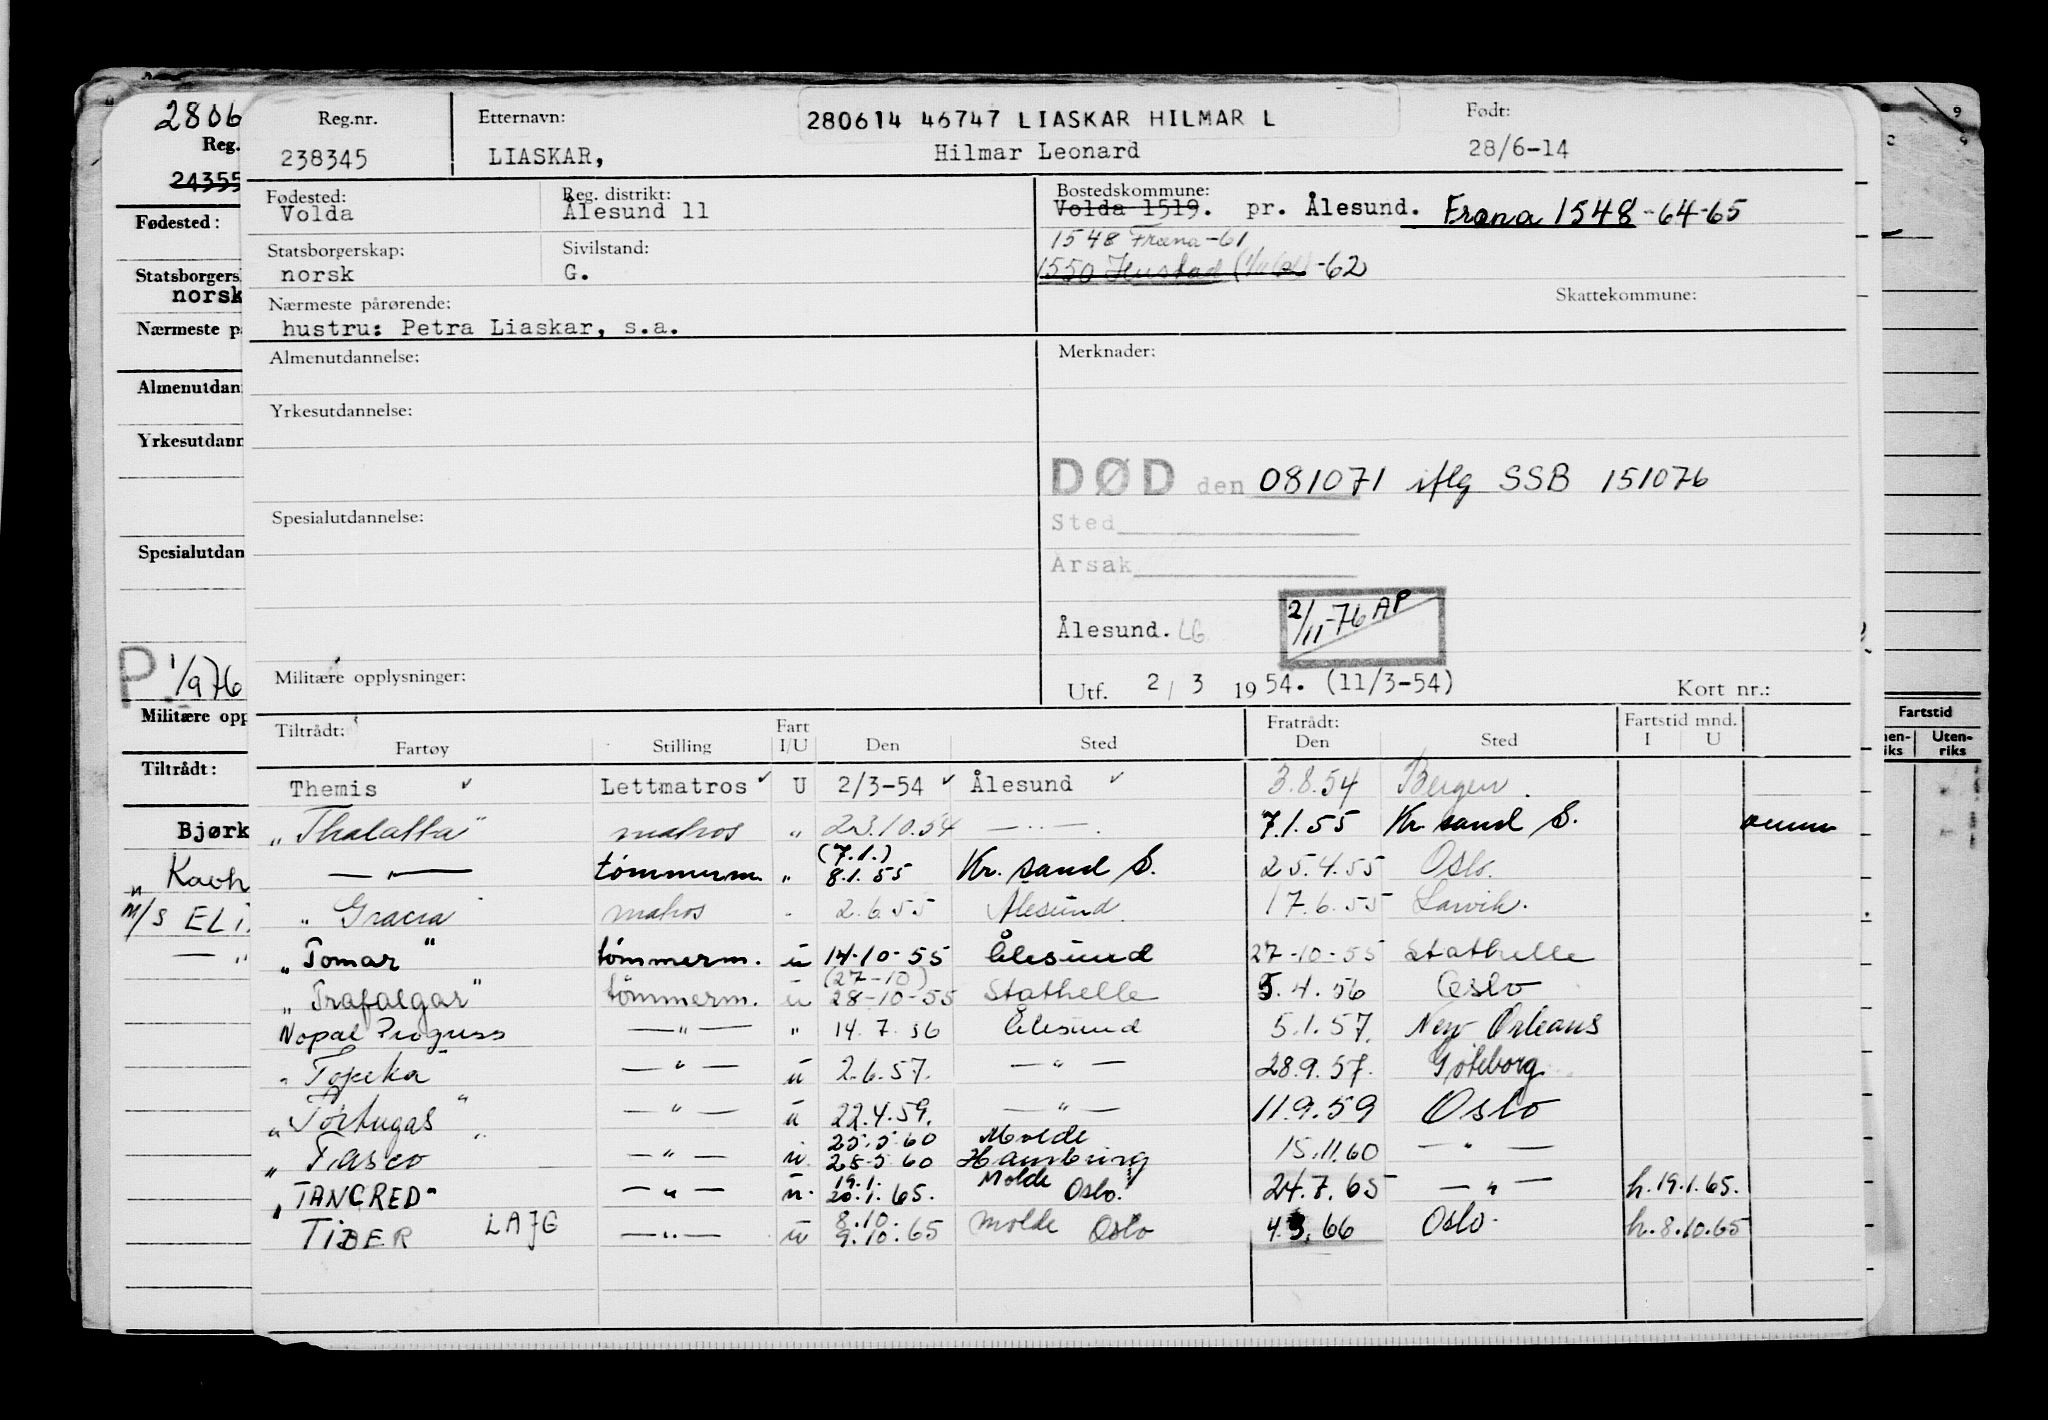 2806
Reg.
24355
Fødested:
Statsborgers
norsk
Nærmeste p
Almenutdan
Yrkesutdann
Spesialutdan
P 1/976
Militære opp
Tiltrådt:
Bjørk
" Kavh
M/S ELI
— "
Reg.nr. Etternavn: 280614 46747 LIASKAR HILMAR L Født:
238345 LIASKAR, Hilmar Leonard 28/6-14
Fødested: Reg. distrikt: Bostedskommune:
Volda Ålesund 11 Volda 1519. pr. Ålesund. Fræna 1548-64-65
Statsborgerskap: Sivilstand: 1548 Fræna-61
norsk G. 1550 Hustad -62
Nærmeste pårørende: Skattekommune:
hustru: Petra Liaskar, s.a.
Almenutdannelse: Merknader:
Yrkesutdannelse:
DØD den 081071 iflg SSB 151076
Spesialutdannelse: Sted
Årsak
Ålesund. LG 2/11-76 AP
Militære opplysninger: Utf. 2/3 1954. (11/3-54) Kort nr.:
Tiltrådt: Fart Fratrådt: Fartstid mnd.
Fartøy Stilling I/U Den Sted Den Sted I U
Themis ✓ Lettmatros ✓ U 2/3-54 ✓ Ålesund ✓ 3.8.54 Bergen.
"Thalatta" matros " 23.10.54 — " —. 7.1.55 Kr. sand S.
— " — tømmerm. " (7.1.) 8.1.55 Kr. sand S. 25.4.55 Oslo.
" Gracia matros " 2.6.55 Ålesund. 17.6.55 Larvik.
"Tomar" tømmerm. u 14-10-55 Ålesund 27-10-55 Stathelle
"Trafalgar" tømmerm. u (27-10) 28-10-55 Stathelle 5.4.56 Oslo
Nopal Progress — " — " 14.7.56 Ålesund 5.1.57. New Orleans
" Topeka — " — u 2.6.57. — " — 28.9.57. Göteborg
"Tortugas" — " — u 22.4.59. — " — 11.9.59 Oslo
" Tasco " — " — u. 25.5.60 Molde
28-5 60 Hamburg 15.11.60 — " —
"TANCRED" — " — u. 19.1. Molde
20.1.65. Oslo. 24.7.65 — " — h.19.1.65.
TIBER LAJG — " — u 8.10. Molde
9.10.65 Oslo 4.3.66 Oslo. h.8.10.65
Fartstid
nen-
iks
Uten-
riks